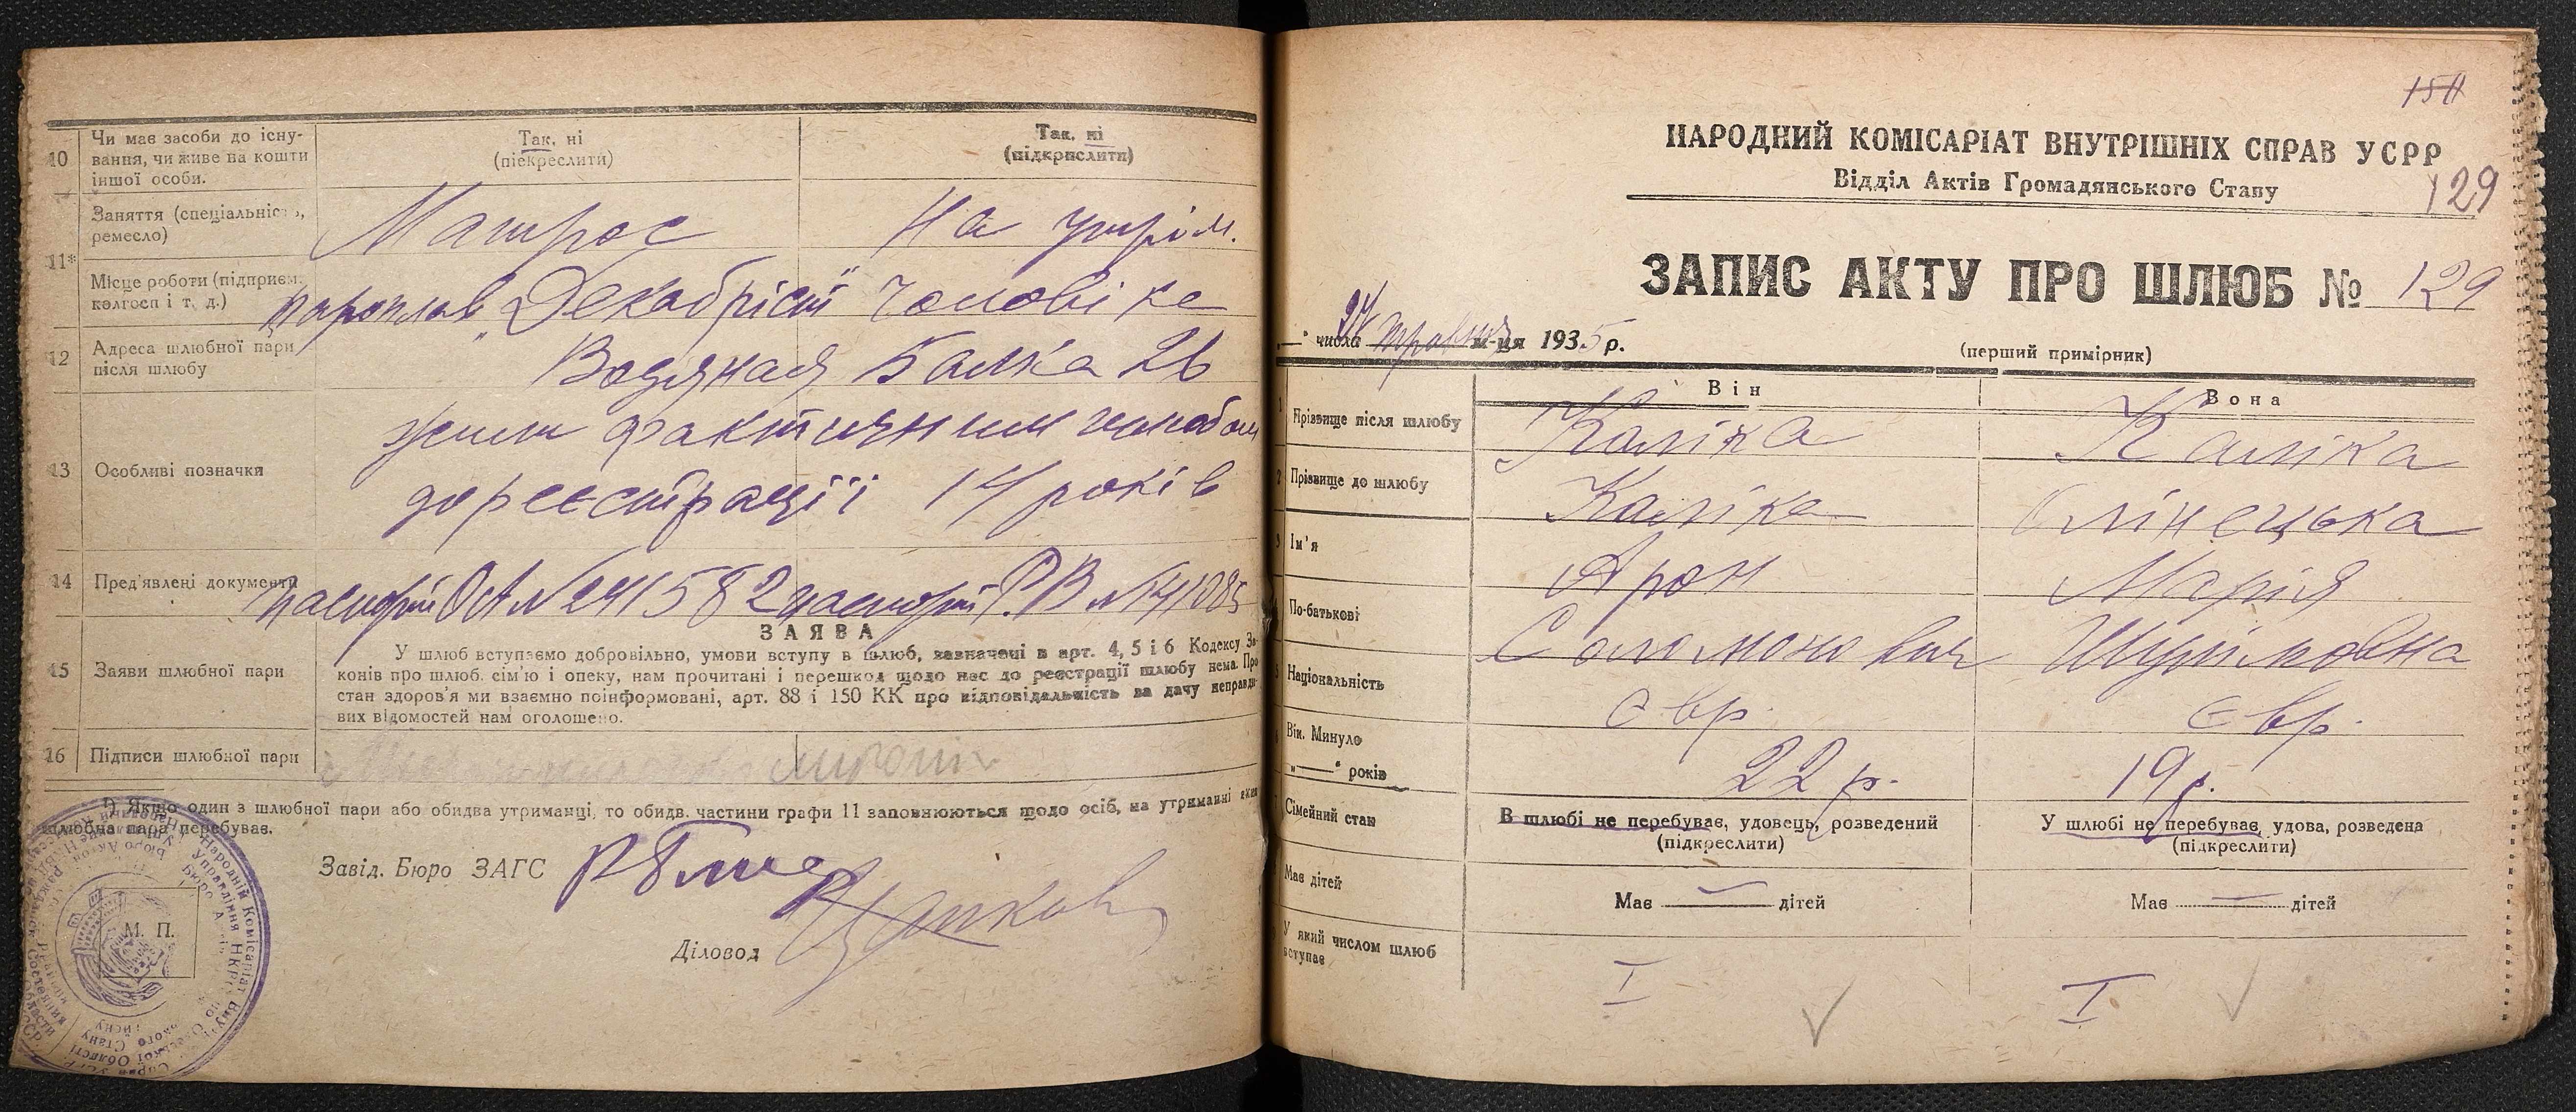 10 Чи має засоби до існу-
вання, чи живе на кошти
іншої особи.
Так, ні
(піекреслити)
Так, ні
(підкрислити)
11* Заняття (спеціальність,
ремесло)
Матрос
На утрім.
Місце роботи (підприєм.
колгосп і т. д.)
пароплав „Декабріст"
Чоловіка
12 Адреса шлюбної пари
після шлюбу
Водяная Балка 26
13 Особливі позначки
фактичним шлюбом
до реєстрації 14 років
14 Пред'явлені документи
паспорт ОА №241582 паспорт РВ
15 Заяви шлюбної пари
ЗАЯВА
У шлюб вступаємо добровільно, умови вступу в шлюб, зазначені в арт. 4, 5 і 6 Кодексу За-
конів про шлюб, сім'ю і опеку, нам прочитані і перешкод щодо нас до реєстрації шлюбу нема. Про
стан здоров'я ми взаємно поінформовані, арт. 88 і 150 КК про відповідальність за дачу неправди-
вих відомостей нам оголошено.
16 Підписи шлюбної пари
1) Якщо один з шлюбної пари або обидва утриманці, то обидв. частини графи 11 заповнюються щодо осіб, на утриманні яких
шлюбна пара перебуває.
Завід. Бюро ЗАГС
М. П.
Діловод
НАРОДНИЙ КОМІСАРІАТ ВНУТРІШНІХ СПРАВ УСРР
Відділ Актів Громадянського Стану
129
ЗАПИС АКТУ ПРО ШЛЮБ № 129
числа травня м-ця 1935 р.
(перший примірник)
Він
Вона
Прізвище після шлюбу
Каліка
Каліка
Прізвище до шлюбу
Каліка
Олінецька
Ім'я
Арон
Марія
По-батькові
Соломонович
Шулімовна
Національність
євр.
євр.
Вік. Минуло
„—" років
22 р.
19 р.
Сімейний стан
В шлюбі не перебував, удовець, розведений
(підкреслити)
У шлюбі не перебував, удова, розведена
(підкреслити)
Має дітей
Має — дітей
Має — дітей
У який числом шлюб
вступає
I
I